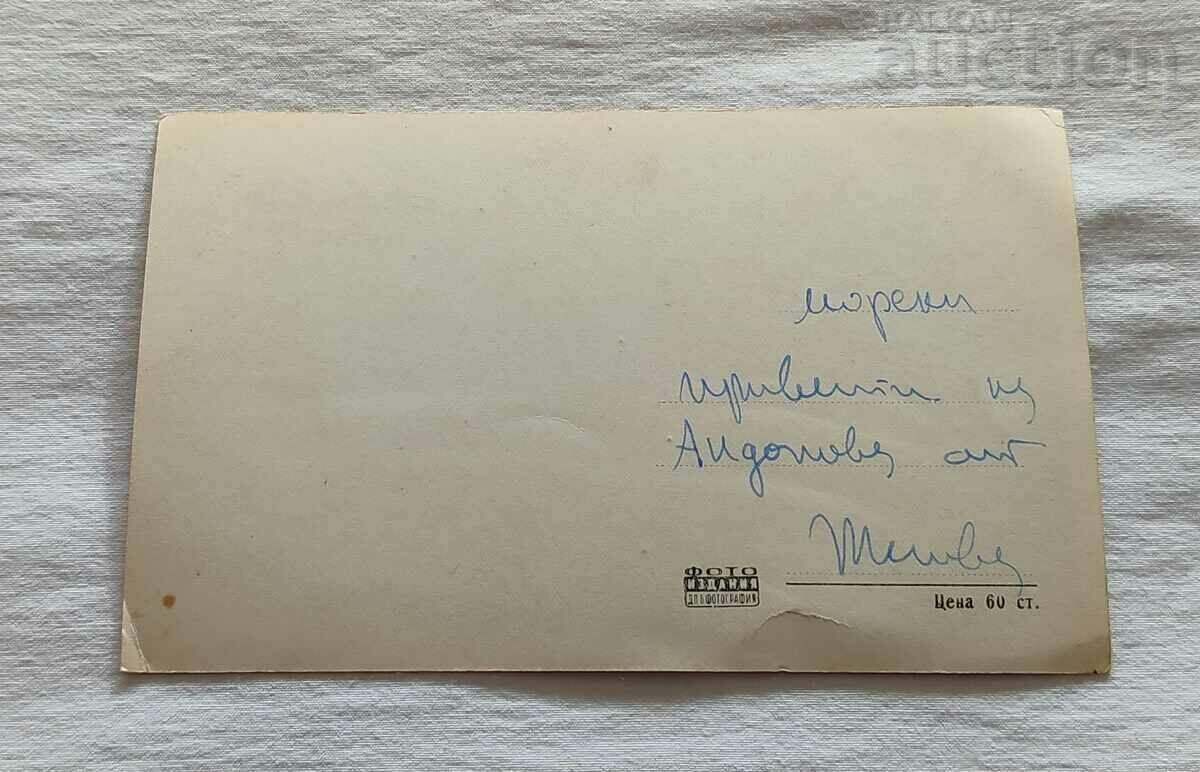 BALKAN
auction
морски
привети на
Андонова от
ФОТО
ИЗДАНИЯ
ДП БФОТОГРАФИЯ
Цена 60 ст.